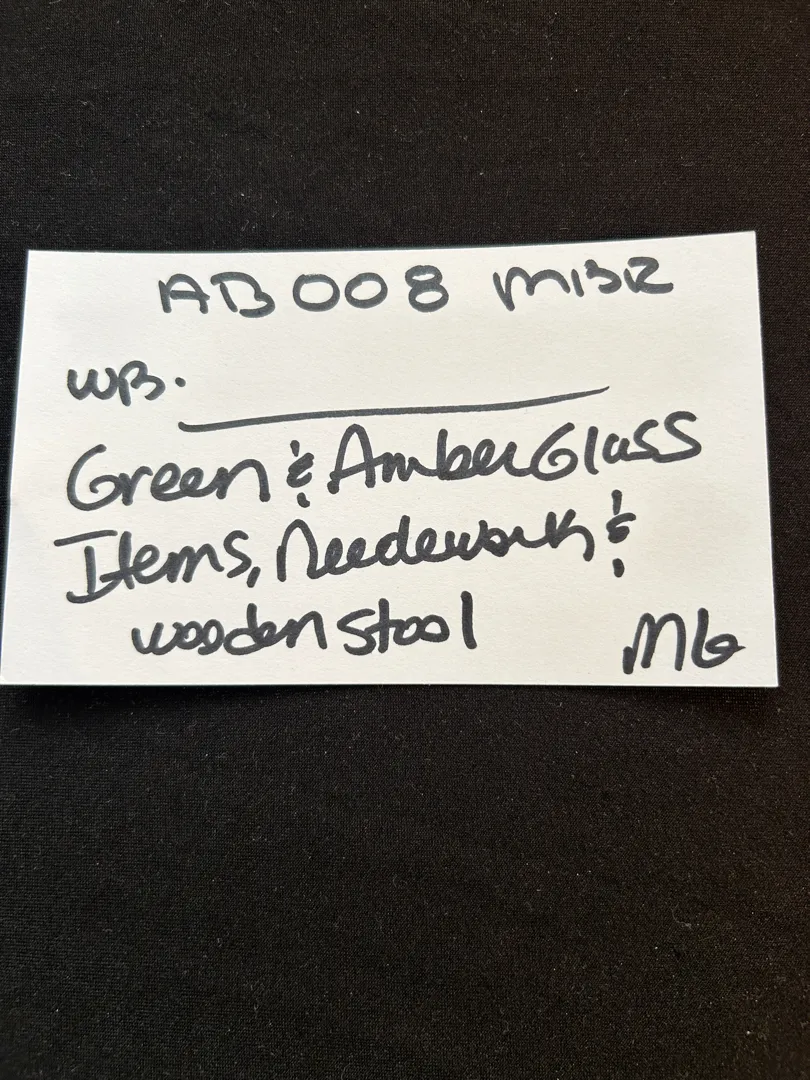 AB008 MBR
WB. 
Green & Amber Glass
Items, Needlework &
wooden stool
MG